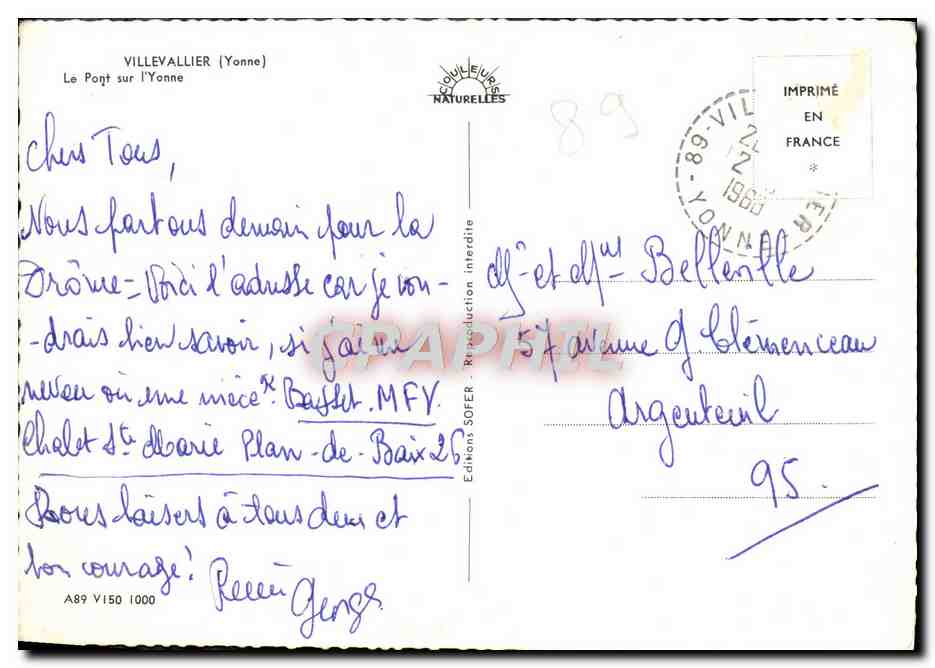 VILLEVALLIER (Yonne)
Le Pont sur l'Yonne
COULEURS
NATURELLES
IMPRIMÉ
EN
FRANCE
*
89
89-VIL
IER
YONNE
2
196
Chers Tous,
Nous partons demain pour la
Drôme = Voici l'adresse car je vou-
-drais bien savoir, si j'ai un
neveu ou une nièce. Basset. MFV.
Chalet Ste Marie Plan-de-Baix 26
Bons baisers à tous deux et
bon courage!
George
A89 V150 1000
Editions SOFER - Reproduction interdite
CPAPHIL
Mr et Mme Belleville
57 avenue G Clémenceau
Argenteuil
95.